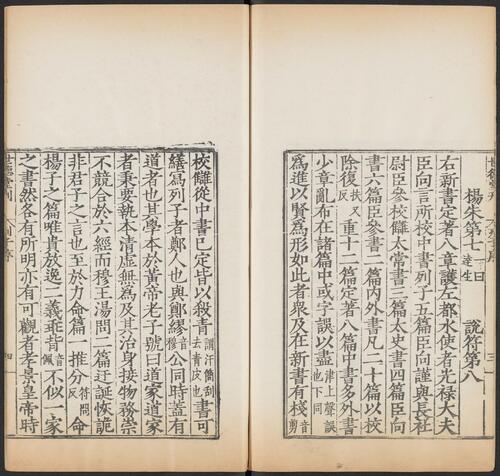 楊朱第七一曰達生 說符第八
右新書定著八章護左都水使者光祿大夫
臣向言所校中書列子五篇臣向謹與長社
尉臣參校讎太常書三篇太史書四篇臣向
書六篇臣參書二篇內外書凡二十篇以校
除復扶又反重十二篇定著八篇中書多外書
少章亂布在諸篇中或字誤以盡津上聲誤也下同
爲進以賢爲形如此者衆及在新書有棧音剪
校讎從中書已定皆以殺青謂汗簡刮去青皮也書可
繕寫列子者鄭人也與鄭繆音穆公同時蓋有
道者也其學本於黃帝老子號曰道家道家
者秉要執本清虛無爲及其治身接物務崇
不競合於六經而穆王湯問二篇迂誕恢詭
非君子之言也至於力命篇一推分符問反命
楊子之篇唯貴放逸二義乖背音佩不似一家
之書然各有所明亦有可觀者孝景皇帝時